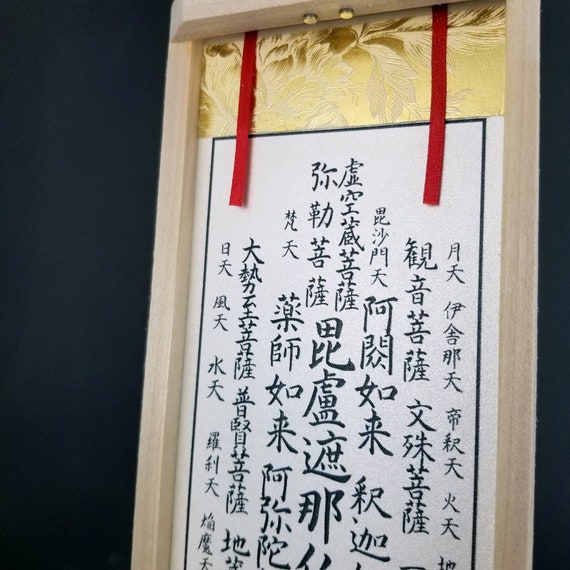 月天 伊舎那天 帝釈天 火天 地
観音菩薩 文殊菩薩
毘沙門天 阿閦如来 釈迦
虚空蔵菩薩
毘盧遮那
弥勒菩薩
梵天 薬師如来 阿弥陀
大勢至菩薩 普賢菩薩 地
日天 風天 水天 羅刹天 焔魔天